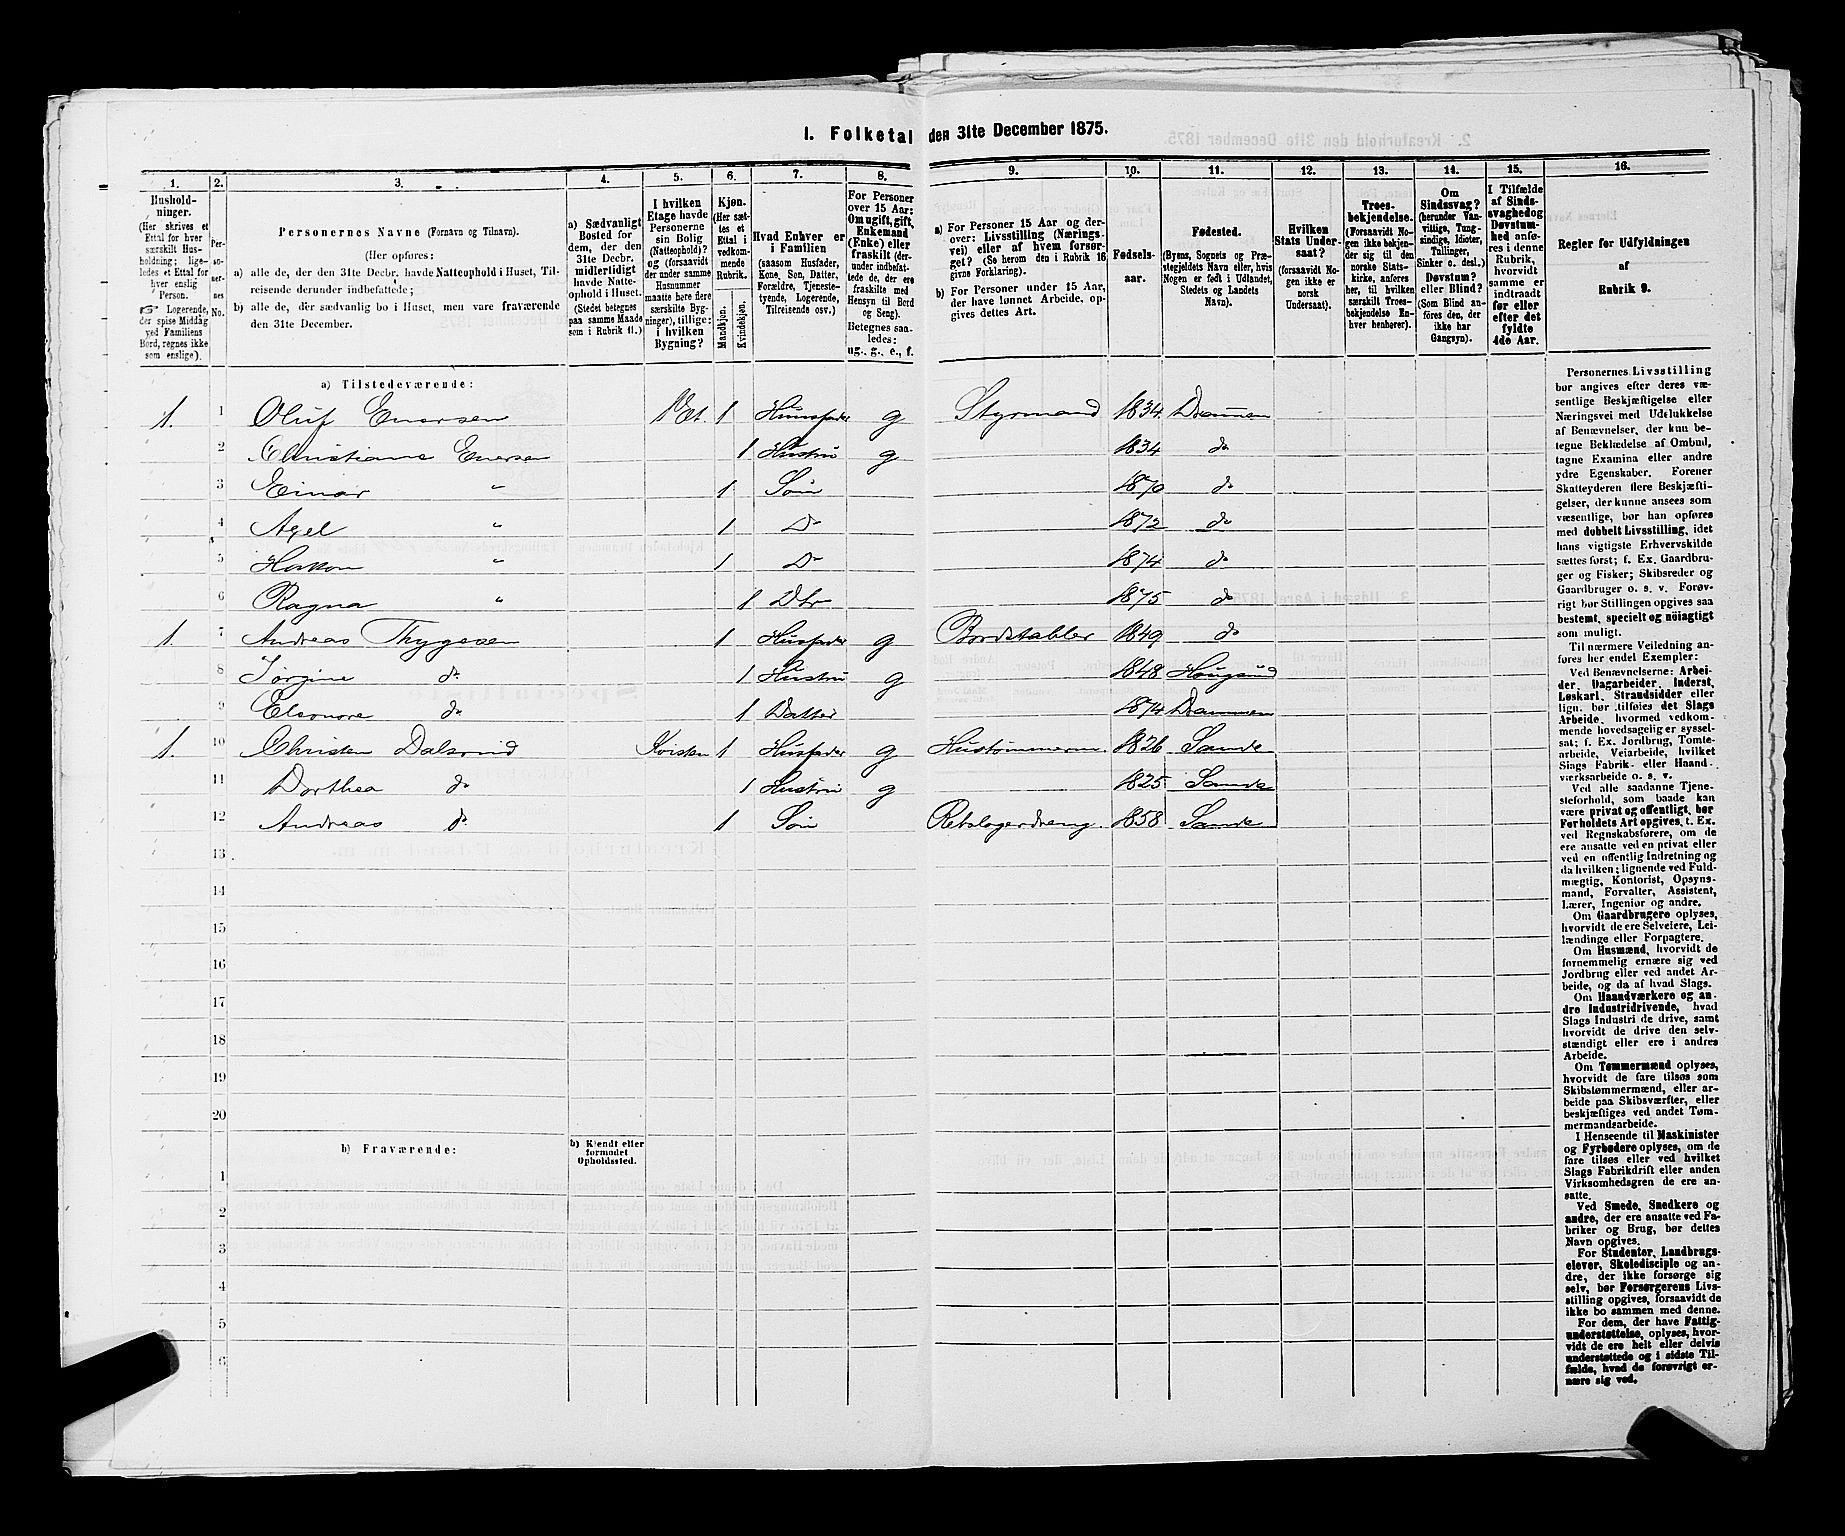 1. Folketal den 31te December 1875.
1. 2. 3. 4. 5. 6. 7. 8. 9. 10. 11. 12. 13. 14. 15. 16.
Husholdninger.
(Her skrives et
Ettal for hver
særskilt Hus-
holdning; lige-
ledes et Ettal for
hver enslig
Person.
☞ Logerende,
der spise Middag
ved Familiens
Bord, regnes ikke
som enslige).
Per-
so-
ner-
nes
No.
Personernes Navne (Fornavn og Tilnavn).
(Her opføres:
a) alle de, der den 31te Decbr. havde Natteophold i Huset, Til-
reisende derunder indbefattede;
b) alle de, der sædvanlig bo i Huset, men vare fraværende
den 31te December.
a) Sædvanligt
Bosted for
dem, der den
31te Decbr.
midlertidigt
havde Natte-
ophold i Huset.
(Stedet betegnes
paa samme Maade
som i Rubrik 11.)
I hvilken
Etage havde
Personerne
sin Bolig
(Natteophold)?
og (forsaavidt
der under samme
Husnummer
maatte høre flere
særskilte Byg-
ninger), tillige:
i hvilken
Bygning?
Kjøn.
(Her sæt-
tes et
Ettal i
vedkom-
mende
Rubrik.
Mandkjøn.
Kvindekjøn.
Hvad Enhver er
i Familien
(saasom Husfader,
Kone, Søn, Datter,
Forældre, Tjeneste-
tyende, Logerende,
Tilreisende osv.)
For Personer
over 15 Aar:
Om ugift, gift,
Enkemand
(Enke) eller
fraskilt (der-
under indbefat-
tede de, der ere
fraskilte med
Hensyn til Bord
og Seng).
Betegnes saa-
ledes:
ug., g., e., f.
a) For Personer 15 Aar og der-
over: Livsstilling (Nærings-
vei) eller af hvem forsør-
get? (Se herom den i Rubrik 16
givne Forklaring).
b) For Personer under 15 Aar,
der have lønnet Arbeide, op-
gives dettes Art.
Fødsels-
aar.
Fødested.
(Byens, Sognets og Præ-
stegjeldets Navn eller, hvis
Nogen er født i Udlandet,
Stedets og Landets
Navn).
Hvilken
Stats Under-
saat?
(forsaavidt No-
gen ikke er
norsk
Undersaat).
Troes-
bekjendelse.
(Forsaavidt No-
gen ikke bekjen-
der sig til den
norske Stats-
kirke, anføres
her, til hvilken
særskilt Troes-
bekjendelse En-
hver henhører).
Om
Sindssvag?
(herunder Van-
vittige, Tung-
sindige, Idioter,
Tullinger,
Sinker o. desl.)
Døvstum?
eller Blind?
(Som Blind an-
føres den, der
ikke har
Gangsyn).
I Tilfælde
af Sinds-
svaghed og
Døvstum-
hed anfø-
res i denne
Rubrik,
hvorvidt
samme er
indtraadt
før eller
efter det
fyldte
4de Aar.
Regler for Udfyldningen
af
Rubrik 9.
a) Tilstedeværende:
1. 1 Oluf Enersen 1 Et. 1 Huusfader g Styrmand 1834 Drammen
2 Christiane Enersen 1 Hustru g 1834 do
3 Einar " 1 Søn 1870 do
4 Axel " 1 Do 1872 do
5 Haakon " 1 Do 1874 do
6 Ragna " 1 Dtr 1875 do
1. 7 Andreas Thygesen 1 Husfader g Bordstabler 1849 do
8 Jørgine do 1 Hustru g 1848 Hougsund
9 Eleonore do 1 Datter 1874 Drammen
1. 10 Christen Dalsrud Kvisten 1 Husfader g Hustømmerm. 1826 Sande
11 Dorthea do 1 Hustru g 1825 Sande
12 Andreas do 1 Søn Rebslagerdreng 1858 Sande
13
14
15
16
17
18
19
20
b) Fraværende:
b) Kjendt eller
formodet
Opholdssted.
1
2
3
4
5
6
Personernes Livsstilling
bør angives efter deres væ-
sentlige Beskjæftigelse eller
Næringsvei med Udelukkelse
af Benævnelser, der kun be-
tegne Beklædelse af Ombud,
tagne Examina eller andre
ydre Egenskaber. Forener
Skatteyderen flere Beskjæfti-
gelser, der kunne ansees som
væsentlige, bør han opføres
med dobbelt Livsstilling, idet
hans vigtigste Erhvervskilde
sættes først; f. Ex. Gaardbru-
ger og Fisker; Skibsreder og
Gaardbruger o. s. v. Forøv-
rigt bør Stillingen opgives saa
bestemt, specielt og nöiagtigt
som muligt.
Til nærmere Veiledning an-
føres her endel Exempler:
Ved Benævnelserne: Arbei-
der, Dagarbeider, Inderst,
Løskarl, Strandsidder eller
lign. bør tilføies det Slags
Arbeide, hvormed vedkom-
mende hovedsagelig er syssel-
sat; f. Ex. Jordbrug, Tomte-
arbeide, Veiarbeide, hvilket
Slags Fabrik- eller Haand-
værksarbeide o. s. v.
Ved alle saadanne Tjene-
steforhold, som baade kan
være privat og offentligt, bør
Forholdets Art opgives, t. Ex.
ved Regnskabsførere, om de
ere ansatte ved en privat eller
ved en offentlig Indretning og
da hvilken; lignende ved Fuld-
mægtig, Kontorist, Opsyns-
mand, Forvalter, Assistent,
Lærer, Ingeniør og andre.
Om Gaardbrugere oplyses,
hvorvidt de ere Selveiere, Lei-
lændinge eller Forpagtere.
Om Husmænd, hvorvidt de
fornemmelig ernære sig ved
Jordbrug eller ved andet Ar-
beide, og da af hvad Slags.
Om Haandværkere og an-
dre Industridrivende, hvad
Slags Industri de drive, samt
hvorvidt de drive den selv-
stændigt eller ere i andres
Arbeide.
Om Tømmermænd oplyses,
hvorvidt de fare tilsøs som
Skibstømmermænd, eller ar-
beide paa Skibsværfter, eller
beskjæftiges ved andet Tøm-
mermandsarbeide.
I Henseende til Maskinister
og Fyrbødere oplyses, om de
fare tilsøs eller ved hvilket
Slags Fabrikdrift eller anden
Virksomhedsgren de ere an-
satte.
Ved Smede, Snedkere og
andre, der ere ansatte ved Fa-
briker og Brug, bør dettes
Navn opgives.
For Studenter, Landbrugs-
elever, Skoledisciple og an-
dre, der ikke forsørge sig
selv, bør Forsørgerens Livs-
stilling opgives, forsaavidt de
ikke bo sammen med denne.
For dem, der have Fattig-
understøttelse, oplyses, hvor-
vidt de ere helt eller delvis
understøttede og i sidste Til-
fælde, hvad de forøvrigt er-
nære sig ved.